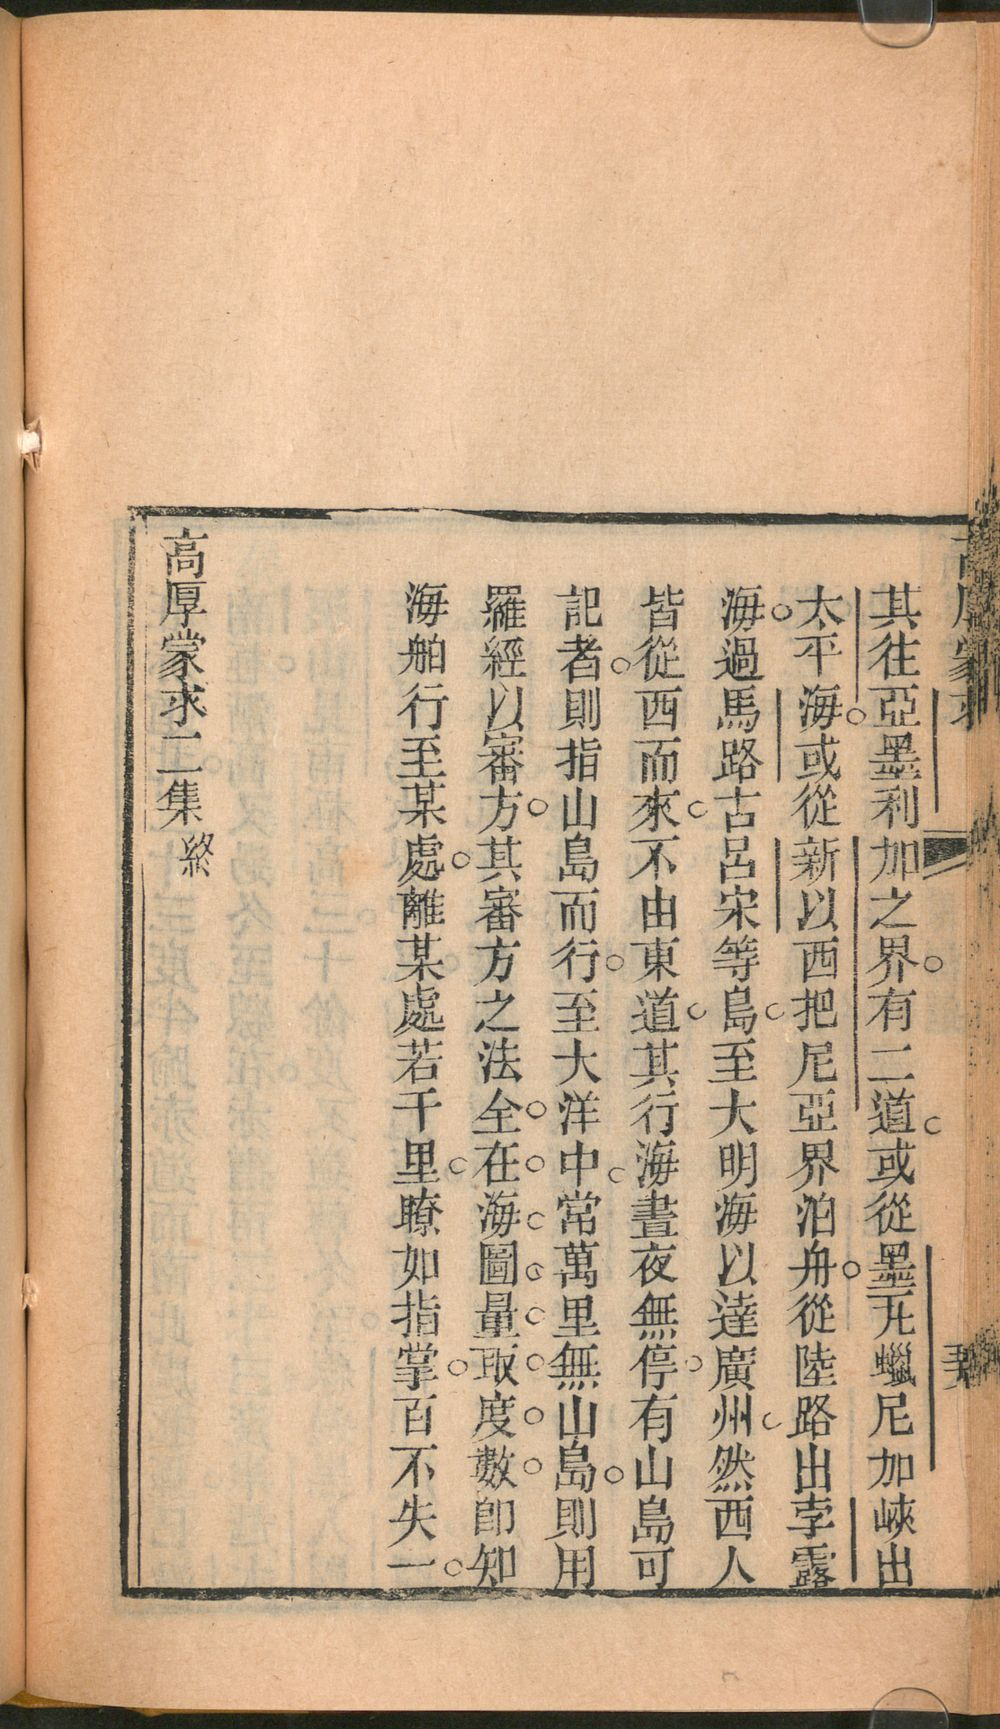 高厚蒙求
其往亞墨利加之界有二道或從墨瓦蠟尼加峽出
太平海或從新以西把尼亞界泊舟從陸路出孛露
海過馬路古呂宋等島至大明海以達廣州然西人
皆從西而來不由東道其行海晝夜無停有山島可
記者則指山島而行至大洋中常萬里無山島則用
羅經以審方其審方之法全在海圖量取度數卽知
海舶行至某處離某處若干里瞭如指掌百不失一
高厚蒙求二集終